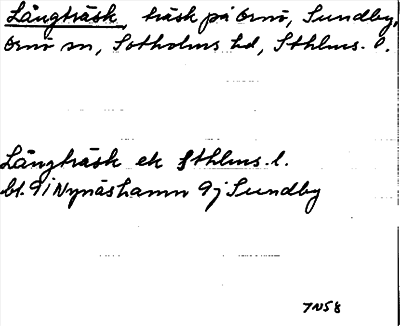 Långträsk, träsk på Ornö, Sundby,
Ornö sn, Sotholms hd, Sthlms. l.
Långträsk ek Sthlms. l.
bl. 9i Nynäshamn 9j Sundby
7N58